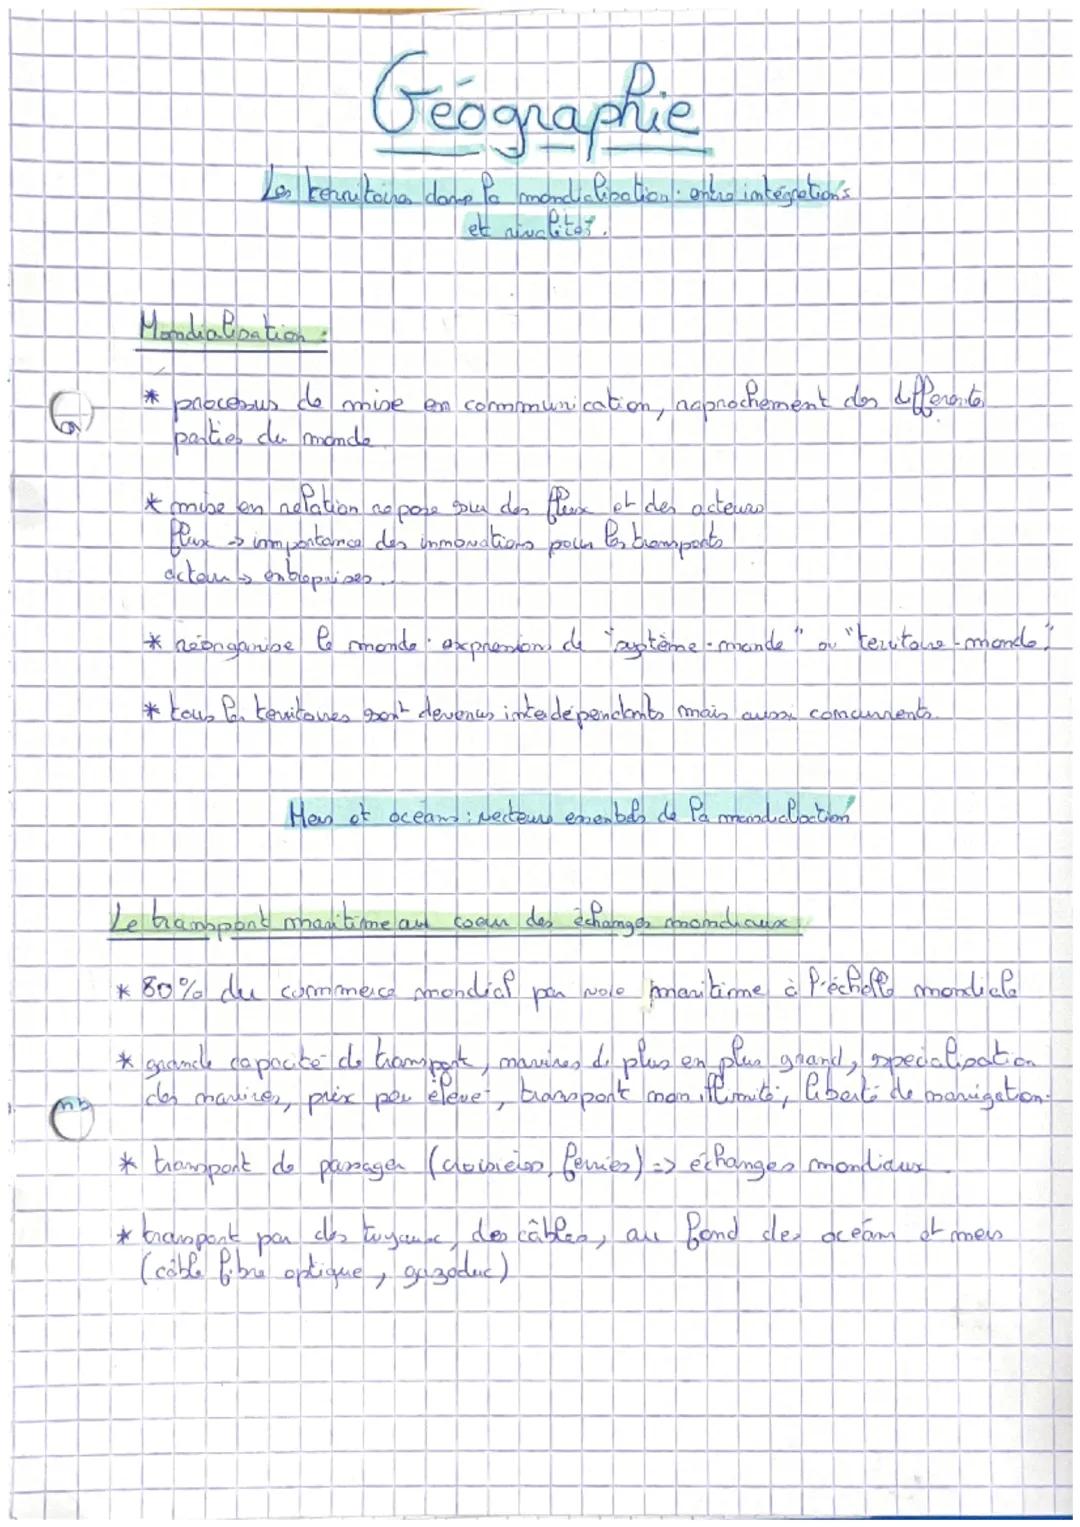 Géographie
Les territoires dans la mondialisation : entre intégrations
et rivalités.
Mondialisation :
* processus de mise en communication, raprochement des différentes
parties du monde.
* mise en relation repose sur des flux et des acteurs
flux → importance des innovations pour les transports
acteur → entreprises...
* réorganise le monde : expression de "système-monde" ou "territoire-monde".
* tous les territoires sont devenus interdépendants mais aussi concurrents.
Mers et océans : vecteurs essentiels de la mondialisation
Le transport maritime au coeur des échanges mondiaux
* 80% du commerce mondial par voie maritime à l'échelle mondiale
* grande capacité de transport, navires de plus en plus grand, spécialisation
des navires, prix peu élevé, transport non illimité, liberté de navigation.
* transport de passager (croisières, ferries) => échanges mondiaux
* transport par des tuyaux, des câbles, au fond des océans et mers
(câble fibre optique, gazoduc)